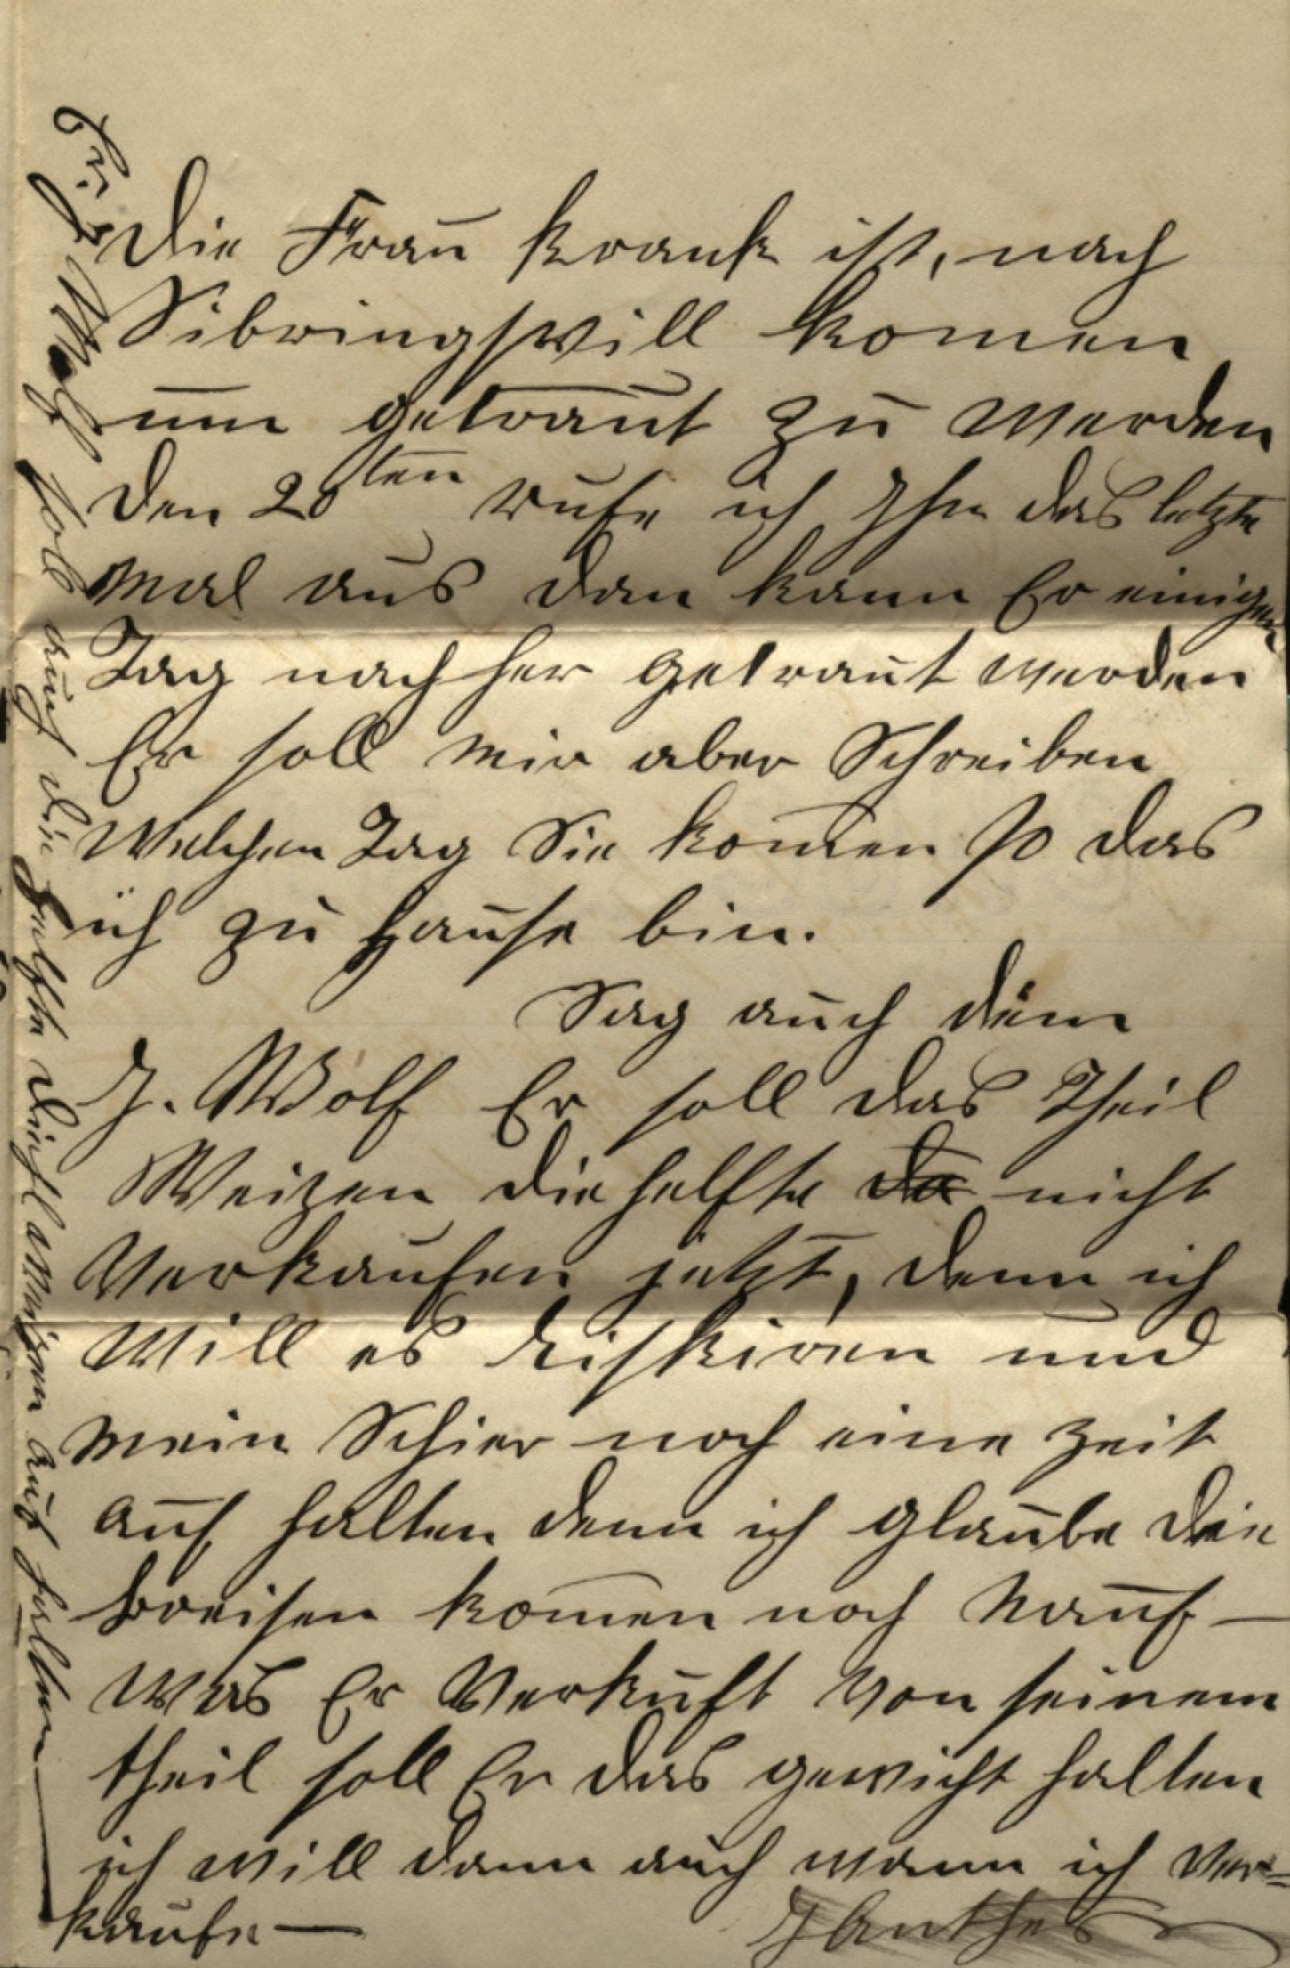 die Frau krank ist, nach
Sibringswill komen
um getraut zu werden
den 20ten rufe ich Ihn das letzte
mal aus dan kann Er einigen
Tag nach her getraut werden
Er soll mir aber Schreiben
Welchen Tag Sie komen so das
ich zu Hause bin.
Sag auch dem
J. Wolf Er soll das Theil
Weizen die helfte da nicht
Verkaufen jetzt, denn ich
will es Risskiren und
mein Schier noch eine Zeit
auf halten denn ich glaube die
Breisen komen noch Nauf —
was Er Verkauft von seinem
theil soll Er das gewicht halten
ich will dann auch wann ich Ver=
kaufe —
J Anthes
Wolf soll auf die helfte auf halten